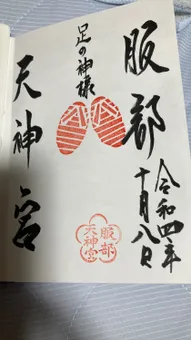 服部
令和四年
十月八日
足の神様
天神宮
服部
天神宮